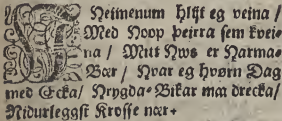 VJ Heimenum hlijt eg veina /
Med Noop þeirra sem kvei-
na / Mut Nws er Harma-
Bær / Hvar eg hvørn Dag
med Ecka / Hrygda-Bikar maa drecka /
Nidurleggst Krosse nær+